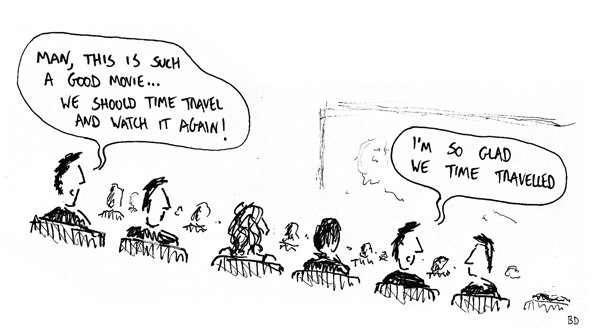 MAN, THIS IS SUCH
A GOOD MOVIE...
WE SHOULD TIME TRAVEL
AND WATCH IT AGAIN!
I'M SO GLAD
WE TIME TRAVELLED
BD